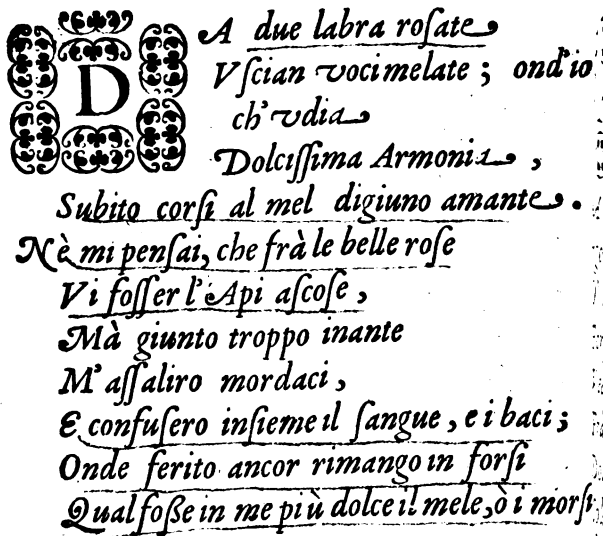 DA due labra roſate
Vſcian voci melate; ond'io
ch'vdia
Dolciſſima Armonia,
Subito corſi al mel digiuno amante.
Nè mi penſai, che frà le belle roſe
Vi foſſer l'Api aſcoſe,
Mà giunto troppo inante
M'aſſaliro mordaci,
E confuſero inſieme il ſangue, e i baci;
Onde ferito ancor rimango in forſi
Qual foße in me più dolce il mele, ò i morſi